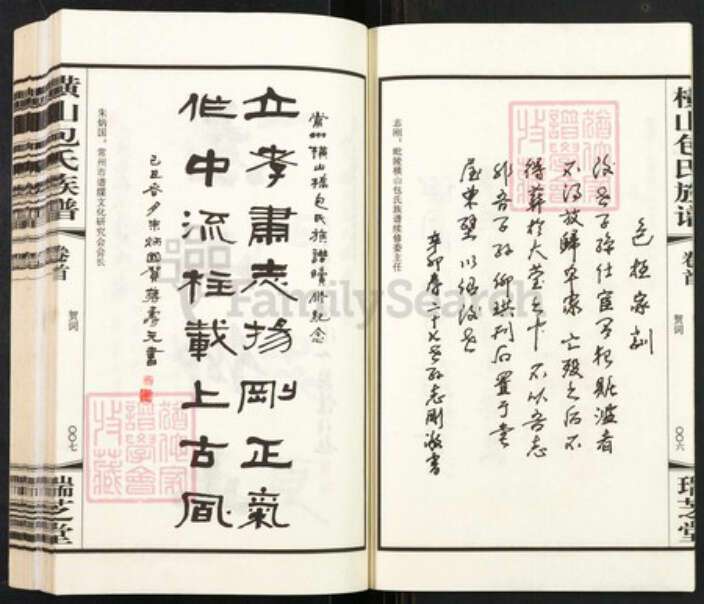 横山包氏族谱
卷首
贺词
〇〇六
瑞芝堂
包拯家訓
後世子孫仕宦有犯赃滥者
不得放歸本家亡殁之后不
得葬於大茔之中不从吾志
非吾子孙仰珙刊石置于堂
屋東壁以紹後世
辛卯春二十七世孙志刚敬書
志刚，毗陵横山包氏族谱续修委主任
常州横山橋包氏族譜續修紀念
立孝肅志揚剛正氣
作中流柱載上古風
己丑春月朱炳國賀
朱炳国，常州市谱牒文化研究会会长
横山包氏族譜
卷首
贺词
〇〇七
瑞芝堂
FamilySearch